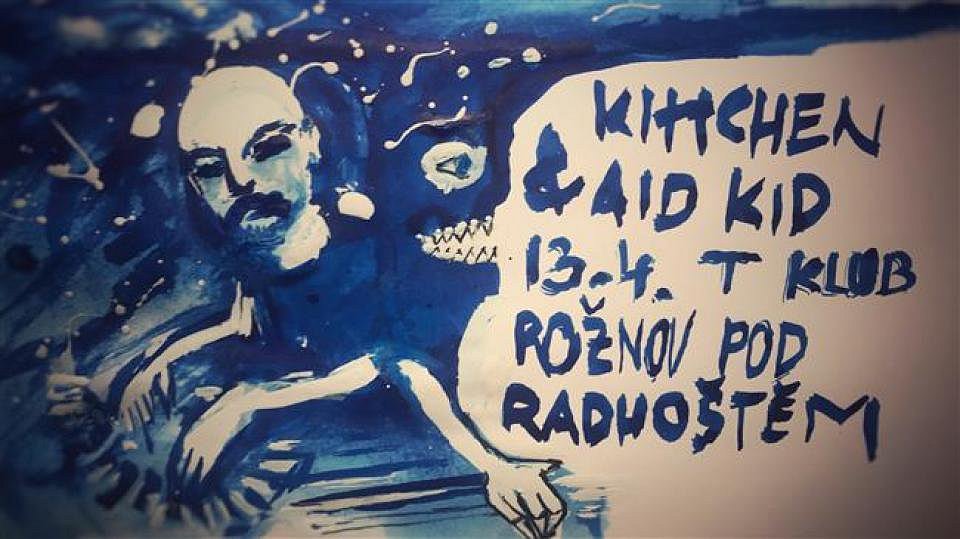 KITTCHEN
& AID KID
13.4. T KLUB
ROŽNOV POD
RADHOŠTĚM